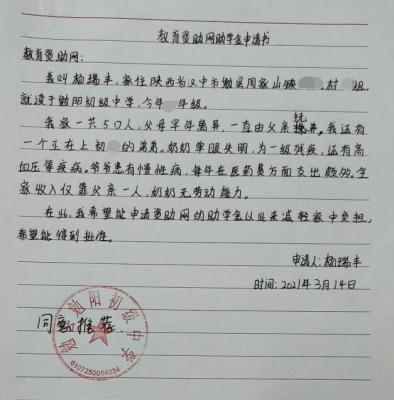 教育资助网助学金申请书
教育资助网:
我叫杨瑞丰,家住陕西省汉中市勉县周家山镇 村 组
就读于勉阳初级中学,今年 年级。
我家一共5口人,父母早年离异,一直由父亲抚养。我还有
一个正在上初 的弟弟。奶奶单眼失明,为一级残疾,还有高
血压等疾病。爷爷患有慢性病,每年在医药费方面支出颇多。全
家收入仅靠父亲一人,奶奶无劳动能力。
在此,我希望能申请资助网的助学金以此来减轻家中负担,
希望能得到批准。
申请人:杨瑞丰
时间:2021年3月14日
同意推荐.
勉县勉阳初级中学
6107250054034